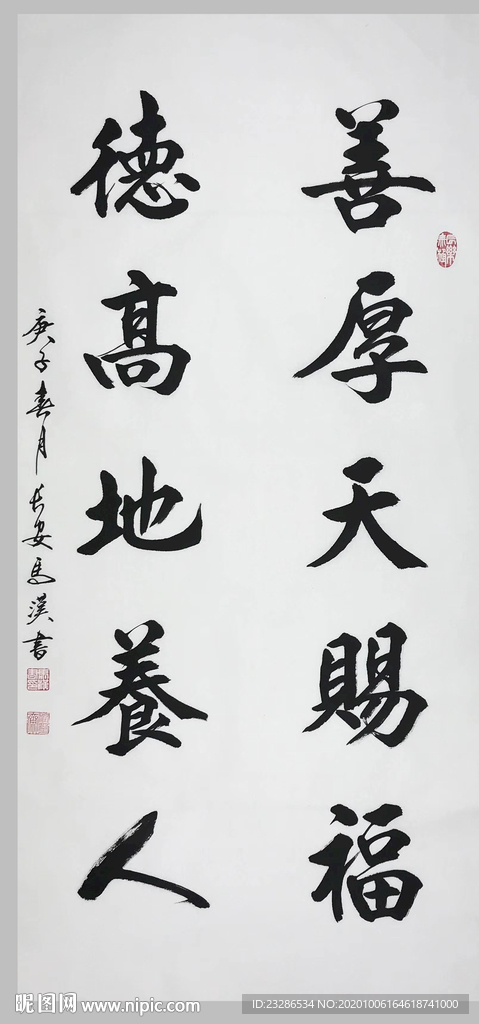 善厚天賜福
德高地養人
庚子春月長安馬漢書
昵图网 www.nipic.com
ID:23286534 NO:20201006164618741000